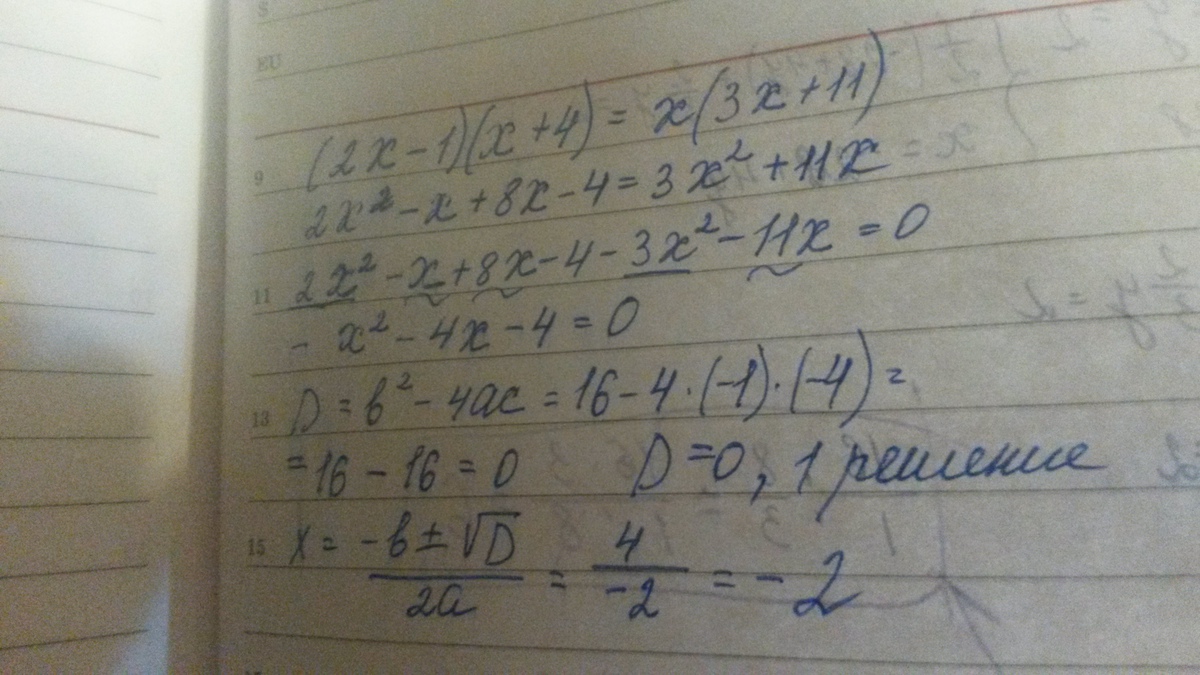 S
EU
(2x-1)(x+4) = x(3x+11)
9
2x² - x + 8x - 4 = 3x² + 11x
11 2x² - x + 8x - 4 - 3x² - 11x = 0
- x² - 4x - 4 = 0
13 D = b² - 4ac = 16 - 4·(-1)·(-4) =
= 16 - 16 = 0 D = 0, 1 решение
15 x = -b ± √D / 2a = 4 / -2 = -2